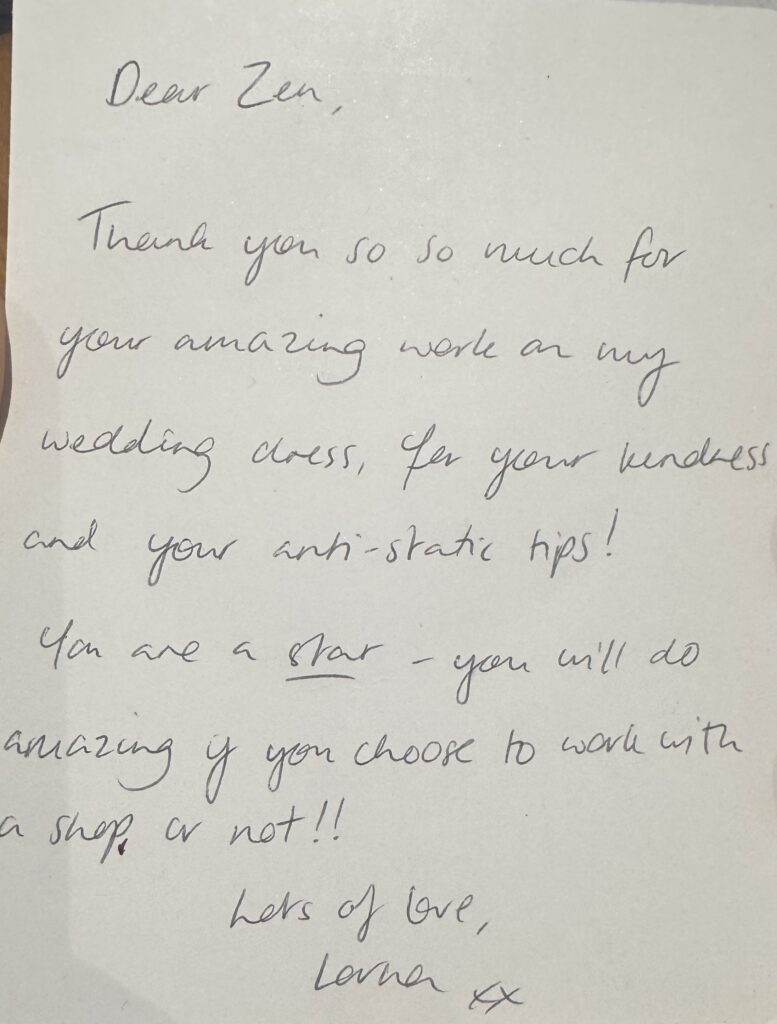 Dear Zen,
Thank you so so much for
your amazing work on my
wedding dress, for your kindness
and your anti-static tips!
You are a star - you will do
amazing if you choose to work with
a shop, or not!!
Lots of love,
Lorna xx